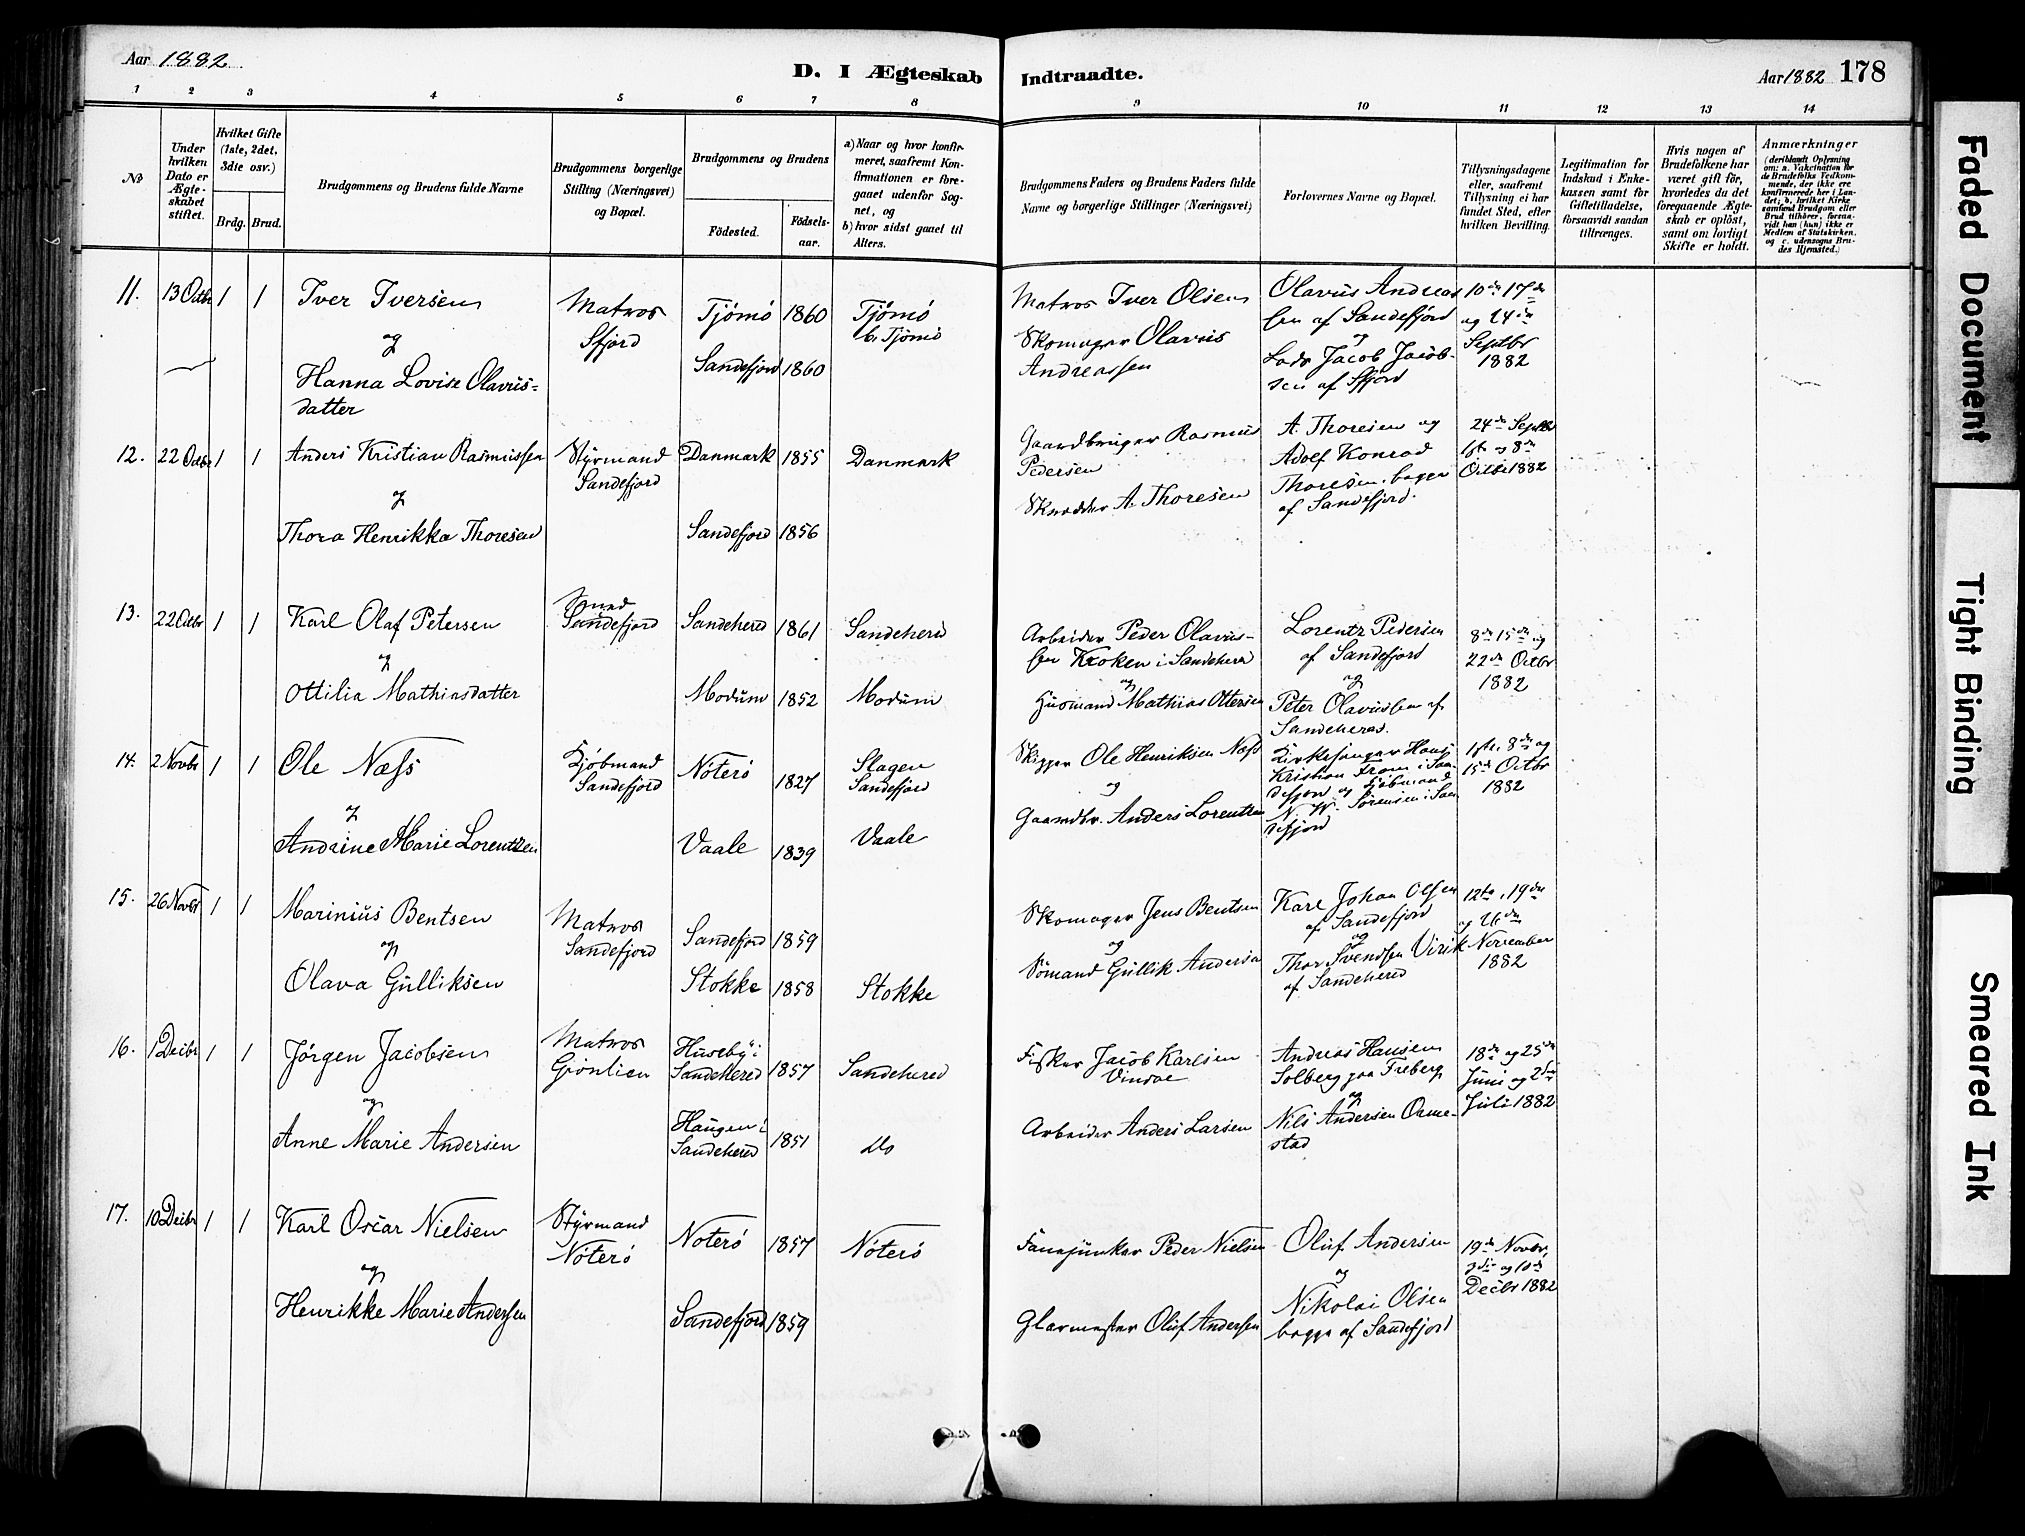 Aar 1882.
D. I Ægteskab
Indtraadte.
Aar 1882 178
1 2 3 4 5 6 7 8 9 10 11 12 13 14
No
Under hvilken Dato er Ægteskabet stiftet.
Hvilket Gifte (1ste, 2det, 3die osv.)
Brdg. Brud.
Brudgommens og Brudens fulde Navne
Brudgommens borgerlige Stilling (Næringsvei) og Bopæl.
Brudgommens og Brudens
Fødested.
Fødselsaar.
a) Naar og hvor konfirmeret, saafremt Konfirmationen er foregaaet udenfor Sognet, og
b) hvor sidst gaaet til Alters.
Brudgommens Faders og Brudens Faders fulde Navne og borgerlige Stillinger (Næringsvei)
Forlovernes Navne og Bopæl.
Tillysningsdagene eller, saafremt Tillysning ei har fundet Sted, efter hvilken Bevilling.
Legitimation for Indskud i Enkekassen samt for Giftetilladelse, forsaavidt saadan tiltrænges.
Hvis nogen af Brudefolkene har været gift før, hvorledes da det foregaaende Ægteskab er opløst, samt om lovligt Skifte er holdt.
Anmærkninger
(deriblandt Oplysning om: a. Vakcination for de Brudefolks Vedkommende, der ikke ere konfirmerede her i Landet; b. hvilket Kirkesamfund Brudgom eller Brud tilhører, forsaavidt han (hun) ikke er Medlem af Statskirken, og c. udensogns Brudes Hjemsted.)
11. 13 Octbr 1 1 Iver Iversen
og
Hanna Lovise Olavusdatter
Matros
Sfjord
Tjømø 1860
Sandefjord 1860
Tjømø
b. Tjømø
Matros Iver Olsen
Skomager Olavus
Andreassen
Olavus Andreassen af Sandefjord
og
Lods Jacob Jacobsen af Sfjord
10de 17de
og 24de
Septbr
1882
12. 22 Octbr 1 1 Anders Kristian Rasmussen
og
Thora Henrikka Thoresen
Styrmand
Sandefjord
Danmark 1855
Sandefjord 1856
Danmark
Gaardbruger Rasmus
Pedersen
Skrædder A. Thoresen
A. Thoresen og
Adolf Konrad
Thoresen, begge
af Sandefjord.
24de Septbr
1ste og 8de
Octbr 1882
13. 22 Octbr 1 1 Karl Olaf Petersen
og
Ottilia Mathiasdatter
Sandefjord
Sandehered 1861
Modum 1852
Sandehered
Modum
Arbeider Peder Olavussen Kroken i Sandehered
og
Husmand Mathias Ottersen
Lorentz Pedersen
af Sandefjord
og
Peter Olavussen af
Sandehered.
8de 15de og
22de Octbr
1882
14. 2 Novbr 1 1 Ole Næss
og
Andrine Marie Lorentzen
Kjøbmand
Sandefjord
Nøterø 1827
Vaale 1839
Slagen
Sandefjord
Vaale
Skipper Ole Henriksen Næss
og
Gaardbr. Anders Lorentzen
Kirkesanger Hans
Kristian Fram i Sandefjord og Kjøbmand
N. Sørensen i Sandefjord
1ste, 8de og
15de Octbr
1882
15. 26 Novbr 1 1 Marinius Bentsen
og
Olava Gulliksen
Matros
Sandefjord
Sandefjord 1859
Stokke 1858
Stokke
Skomager Jens Bentsen
og
Sømand Gullik Anderson
Karl Johan Olsen
af Sandefjord
og
Thor Svendsen Virik
af Sandehered
12te, 19de
og 26de
November
1882
16. 1 Decbr 1 1 Jørgen Jacobsen
og
Anne Marie Andersen
Matros
Grønlien
Huseby i
Sandehered 1857
Haugen i
Sandehered 1851
Sandehered
Do
Fisker Jacob Karlsen
Vindal
Arbeider Anders Larsen
Andreas Hansen
Solberg paa Freberg
og
Nils Andersen Ormestad
18de og 25de
Juni og 2den
Juli 1882
17. 10 Decbr 1 1 Karl Oscar Nielsen
og
Henrikke Marie Andersen
Styrmand
Nøterø
Nøterø 1857
Sandefjord 1859
Nøterø
Fanejunker Peder Nielsen
Glarmester Oluf Andersen
Oluf Andersen
og
Nikolai Olsen
begge af Sandefjord
19de Novbr,
3die og 10de
Decbr 1882
Faded Document
Tight Binding
Smeared Ink